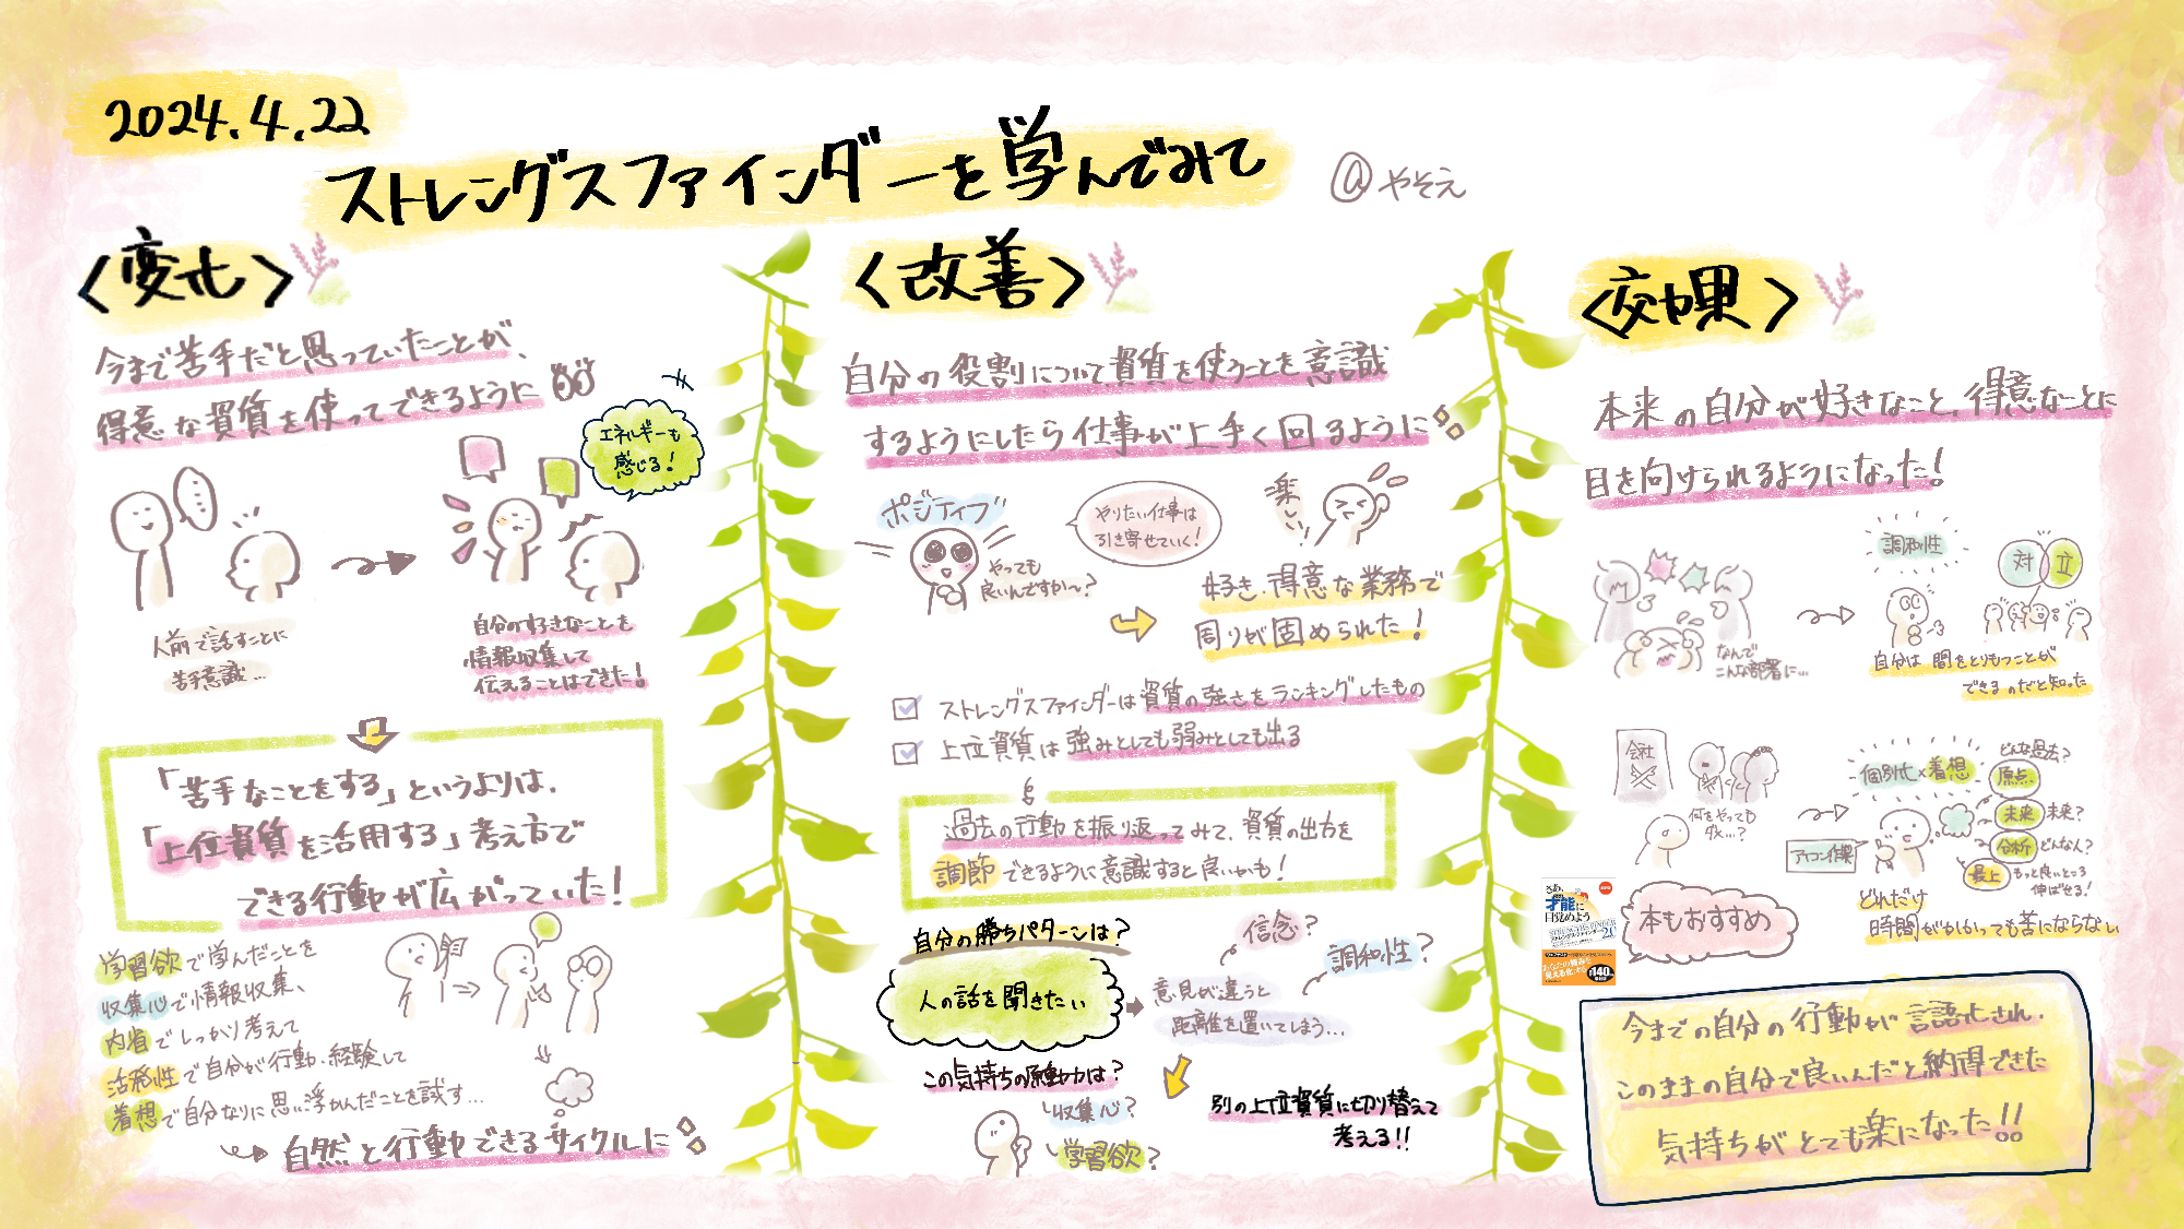 2024.4.22
ストレングスファインダーを学んでみて
@やそえ
<変化>
今まで苦手だと思っていたことが、
得意な資質を使ってできるように
エネルギーも
感じる!
人前で話すことに
苦手意識…
自分の好きなことを
情報収集して
伝えることはできた!
「苦手なことをする」というよりは、
「上位資質を活用する」考え方で
できる行動が広がっていた!
学習欲で学んだことを
収集心で情報収集、
内省でしっかり考えて
活発性で自分が行動・経験して
着想で自分なりに思い浮かんだことを試す…
自然と行動できるサイクルに
<改善>
自分の役割について資質を使うことを意識
するようにしたら仕事が上手く回るように
ポジティブ
やっても
良いんですか〜?
やりたい仕事は
引き寄せていく!
楽しい
好き・得意な業務で
周りが固められた!
ストレングスファインダーは資質の強さをランキングしたもの
上位資質は強みとしても弱みとしても出る
過去の行動を振り返ってみて、資質の出力を
調節できるように意識すると良いかも!
自分の勝ちパターンは?
人の話を聞きたい
信念?
調和性?
意見が違うと
距離を置いてしまう…
この気持ちの原動力は?
収集心?
学習欲?
別の上位資質に切り替えて
考える!!
<効果>
本来の自分が好きなこと、得意なことに
目を向けられるようになった!
なんで
こんな部署に…
調和性
対立
自分は間をとりもつことが
できるのだと知った
会社
何をやっても
ダメ…?
個別化×着想
アイコン作製
どんな過去?
原点
未来 未来?
分析 どんな人?
最上 もっと良いところ
伸ばせる!
どれだけ
時間がかかっても苦にならない
さあ、
才能に
目覚めよう
STRENGTHS FINDER
ストレングス・ファインダー2.0
本もおすすめ
今までの自分の行動が言語化され、
このままの自分で良いんだと納得できた
気持ちがとても楽になった!!